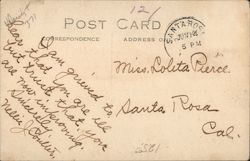 POST CARD
CORRESPONDENCE
ADDRESS
12/
SANTA ROSA
5 PM
I am grieved to
hear that you are ill
but trust that you
are now improving.
Sincerely,
Nellie
Miss. Lolita Pierce
Santa Rosa
Cal.